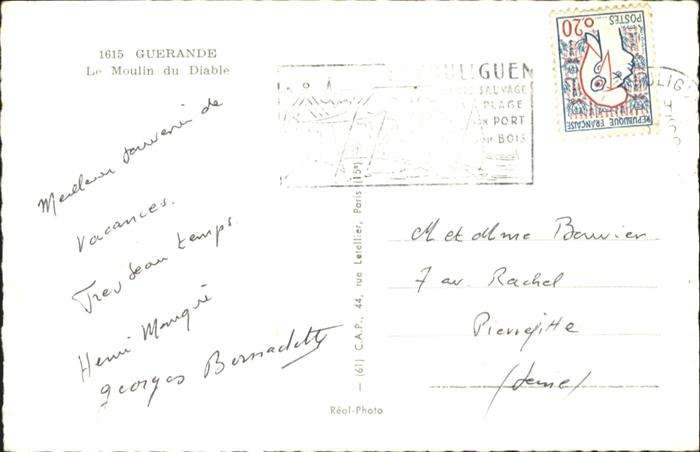 1615 GUERANDE
Le Moulin du Diable
Meilleur souvenir de
vacances.
Tres beau temps
Henri
georges Bernadette
ULIGUEN
SAUVAGE
PLAGE
PORT
BOIS
0,20
POSTES
REPUBLIQUE FRANÇAISE
ULIG
M et Mme Bouvier
7 av. Rachel
Pierrefitte
(Seine)
— (61) C.A.P., 44, rue Letellier, Paris (15e)
Réol-Photo